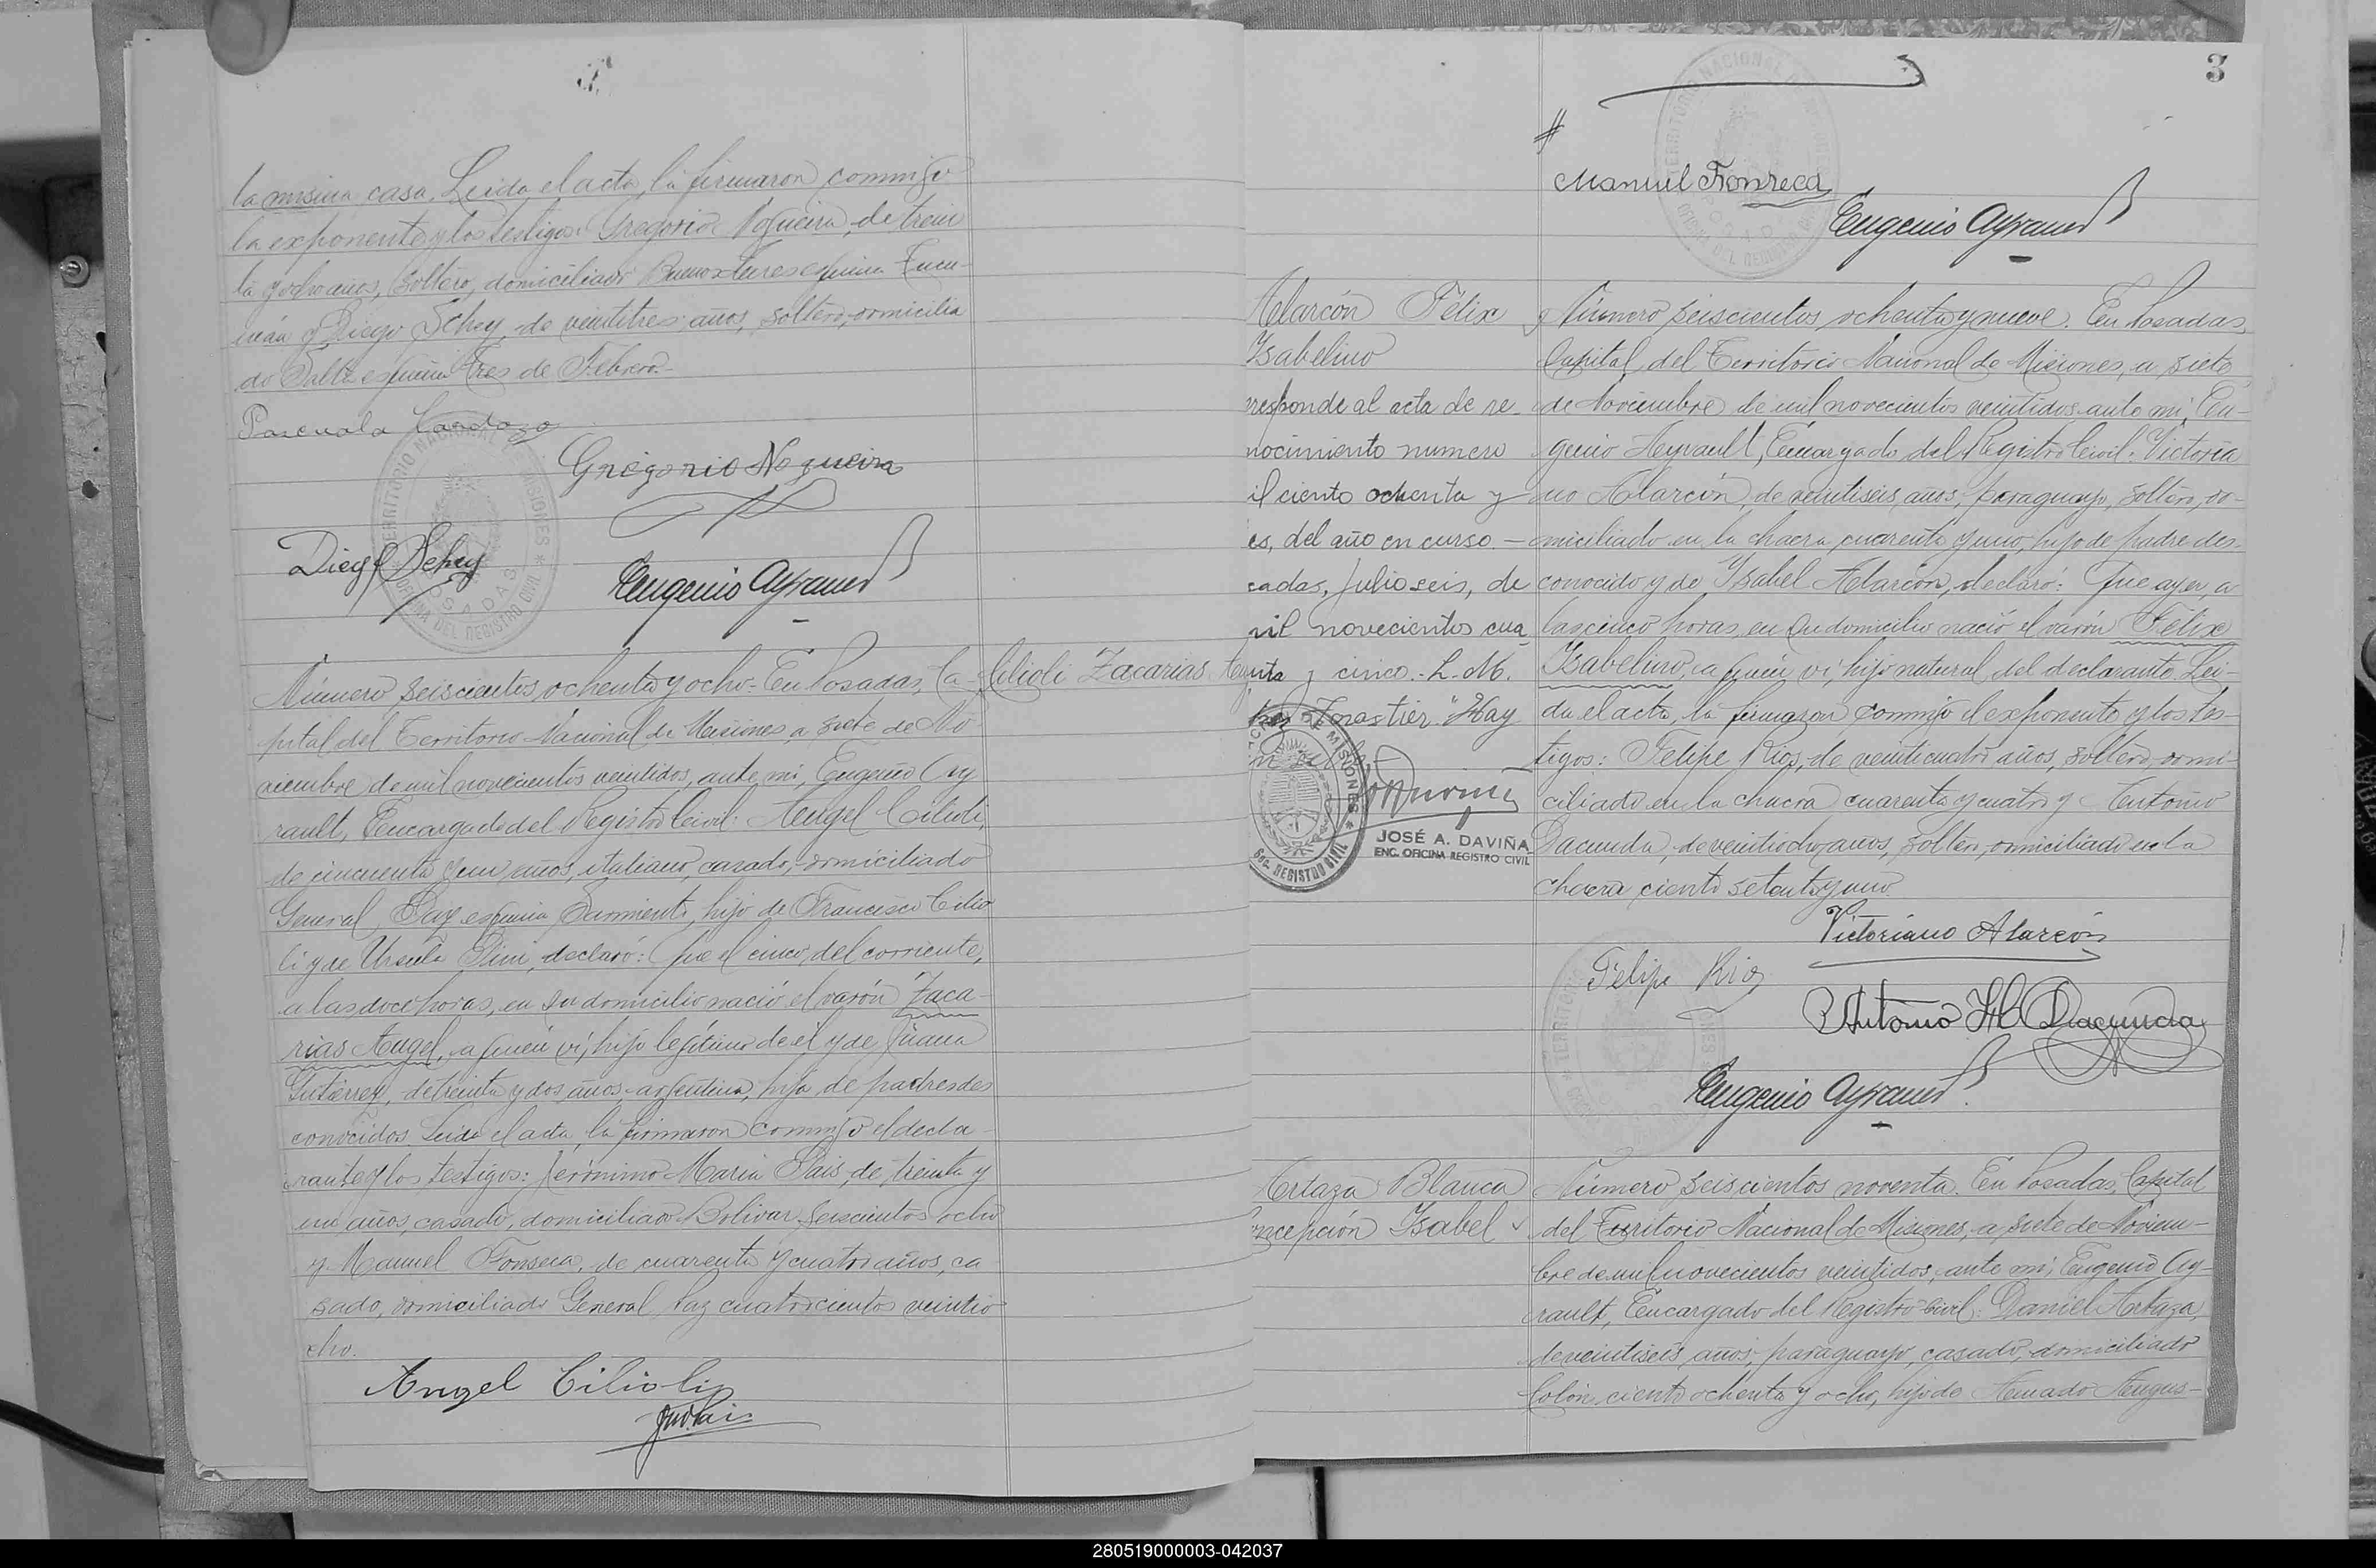 la misma casa. Leida el acta, la firmaron conmigo
la exponente y los testigos: Gregorio Nogueira, de trein
ta y ocho años, soltero, domiciliado Buenos Aires esquina Tucu-
mán y Diego Schey, de veintitres años, soltero, domicilia
do Salta esquina Tres de Febrero.-
Pascuala Cardozo
Gregorio Nogueira
Diego Schey
Eugenio Ayrault
TERRITORIO NACIONAL DE MISIONES * OFICINA DEL REGISTRO CIVIL *
POSADAS
Número seiscientos ochenta y ocho. En Posadas, Ca-
pital del Territorio Nacional de Misiones, a siete de No
viembre de mil novecientos veintidos, ante mi, Eugenio Ay
rault, Encargado del Registro Civil: Angel Cilioli,
de cincuenta y un años, italiano, casado, domiciliado
General Paz esquina Sarmiento, hijo de Francisco Cilio
li y de Ursula declaró: Que el cinco del corriente,
a las doce horas, en su domicilio nació el varón Zaca-
rias Angel, a quien vi, hijo legítimo de él y de Juana
Gutierrez, de treinta y dos años, argentina, hija de padres des
conocidos. Leida el acta, la firmaron conmigo el decla-
rante y los testigos: Jerónimo Maria Pais, de treinta y
un años, casado, domiciliado Bolivar seiscientos ocho
y Manuel Fonseca, de cuarenta y cuatro años, ca
sado, domiciliado General Paz cuatrocientos veintio
cho.
Angel Cilioli
Cilioli Zacarias
Angel
3
#
Manuel Fonseca
Eugenio Ayrault
Alarcón Félix
Isabelino
rresponde al acta de re-
nocimiento numero
il ciento ochenta y
es, del año en curso.-
sadas, Julio seis, de
mil novecientos cua
renta y cinco.- L. M.
Forastier. "Hay
JOSÉ A. DAVIÑA
ENC. OFICINA REGISTRO CIVIL
Número seiscientos ochenta y nueve. En Posadas,
Capital del Territorio Nacional de Misiones, a siete
de Noviembre de mil novecientos veintidos ante mi, Eu-
genio Ayrault, Encargado del Registro Civil: Victoria
no Alarcón, de veintiseis años, paraguayo, soltero, do-
miciliado en la chacra cuarenta y uno, hijo de padre des-
conocido y de Ysabel Alarcón, declaró: Que ayer, a
las cinco horas, en su domicilio nació el varón Félix
Isabelino, a quien vi, hijo natural del declarante. Lei-
da el acta, la firmaron conmigo el exponente y los tes-
tigos: Felipe Rios, de veinticuatro años, soltero, domi-
ciliado en la chacra cuarenta y cuatro y Antonio
Dacunda, de veintiocho años, soltero, domiciliado en la
chacra ciento setenta y uno.
Victoriano Alarcón
Felipe Rios
Antonio Dacunda
Eugenio Ayrault
Artaza Blanca
ncepción Isabel
Número seiscientos noventa. En Posadas, Capital
del Territorio Nacional de Misiones, a siete de Noviem-
bre de mil novecientos veintidos, ante mi, Eugenio Ay-
rault, Encargado del Registro Civil: Daniel Artaza,
de veintiseis años, paraguayo, casado, domiciliado
Colón, ciento ochenta y ocho, hijo de Amado Augus-
280519000003-042037